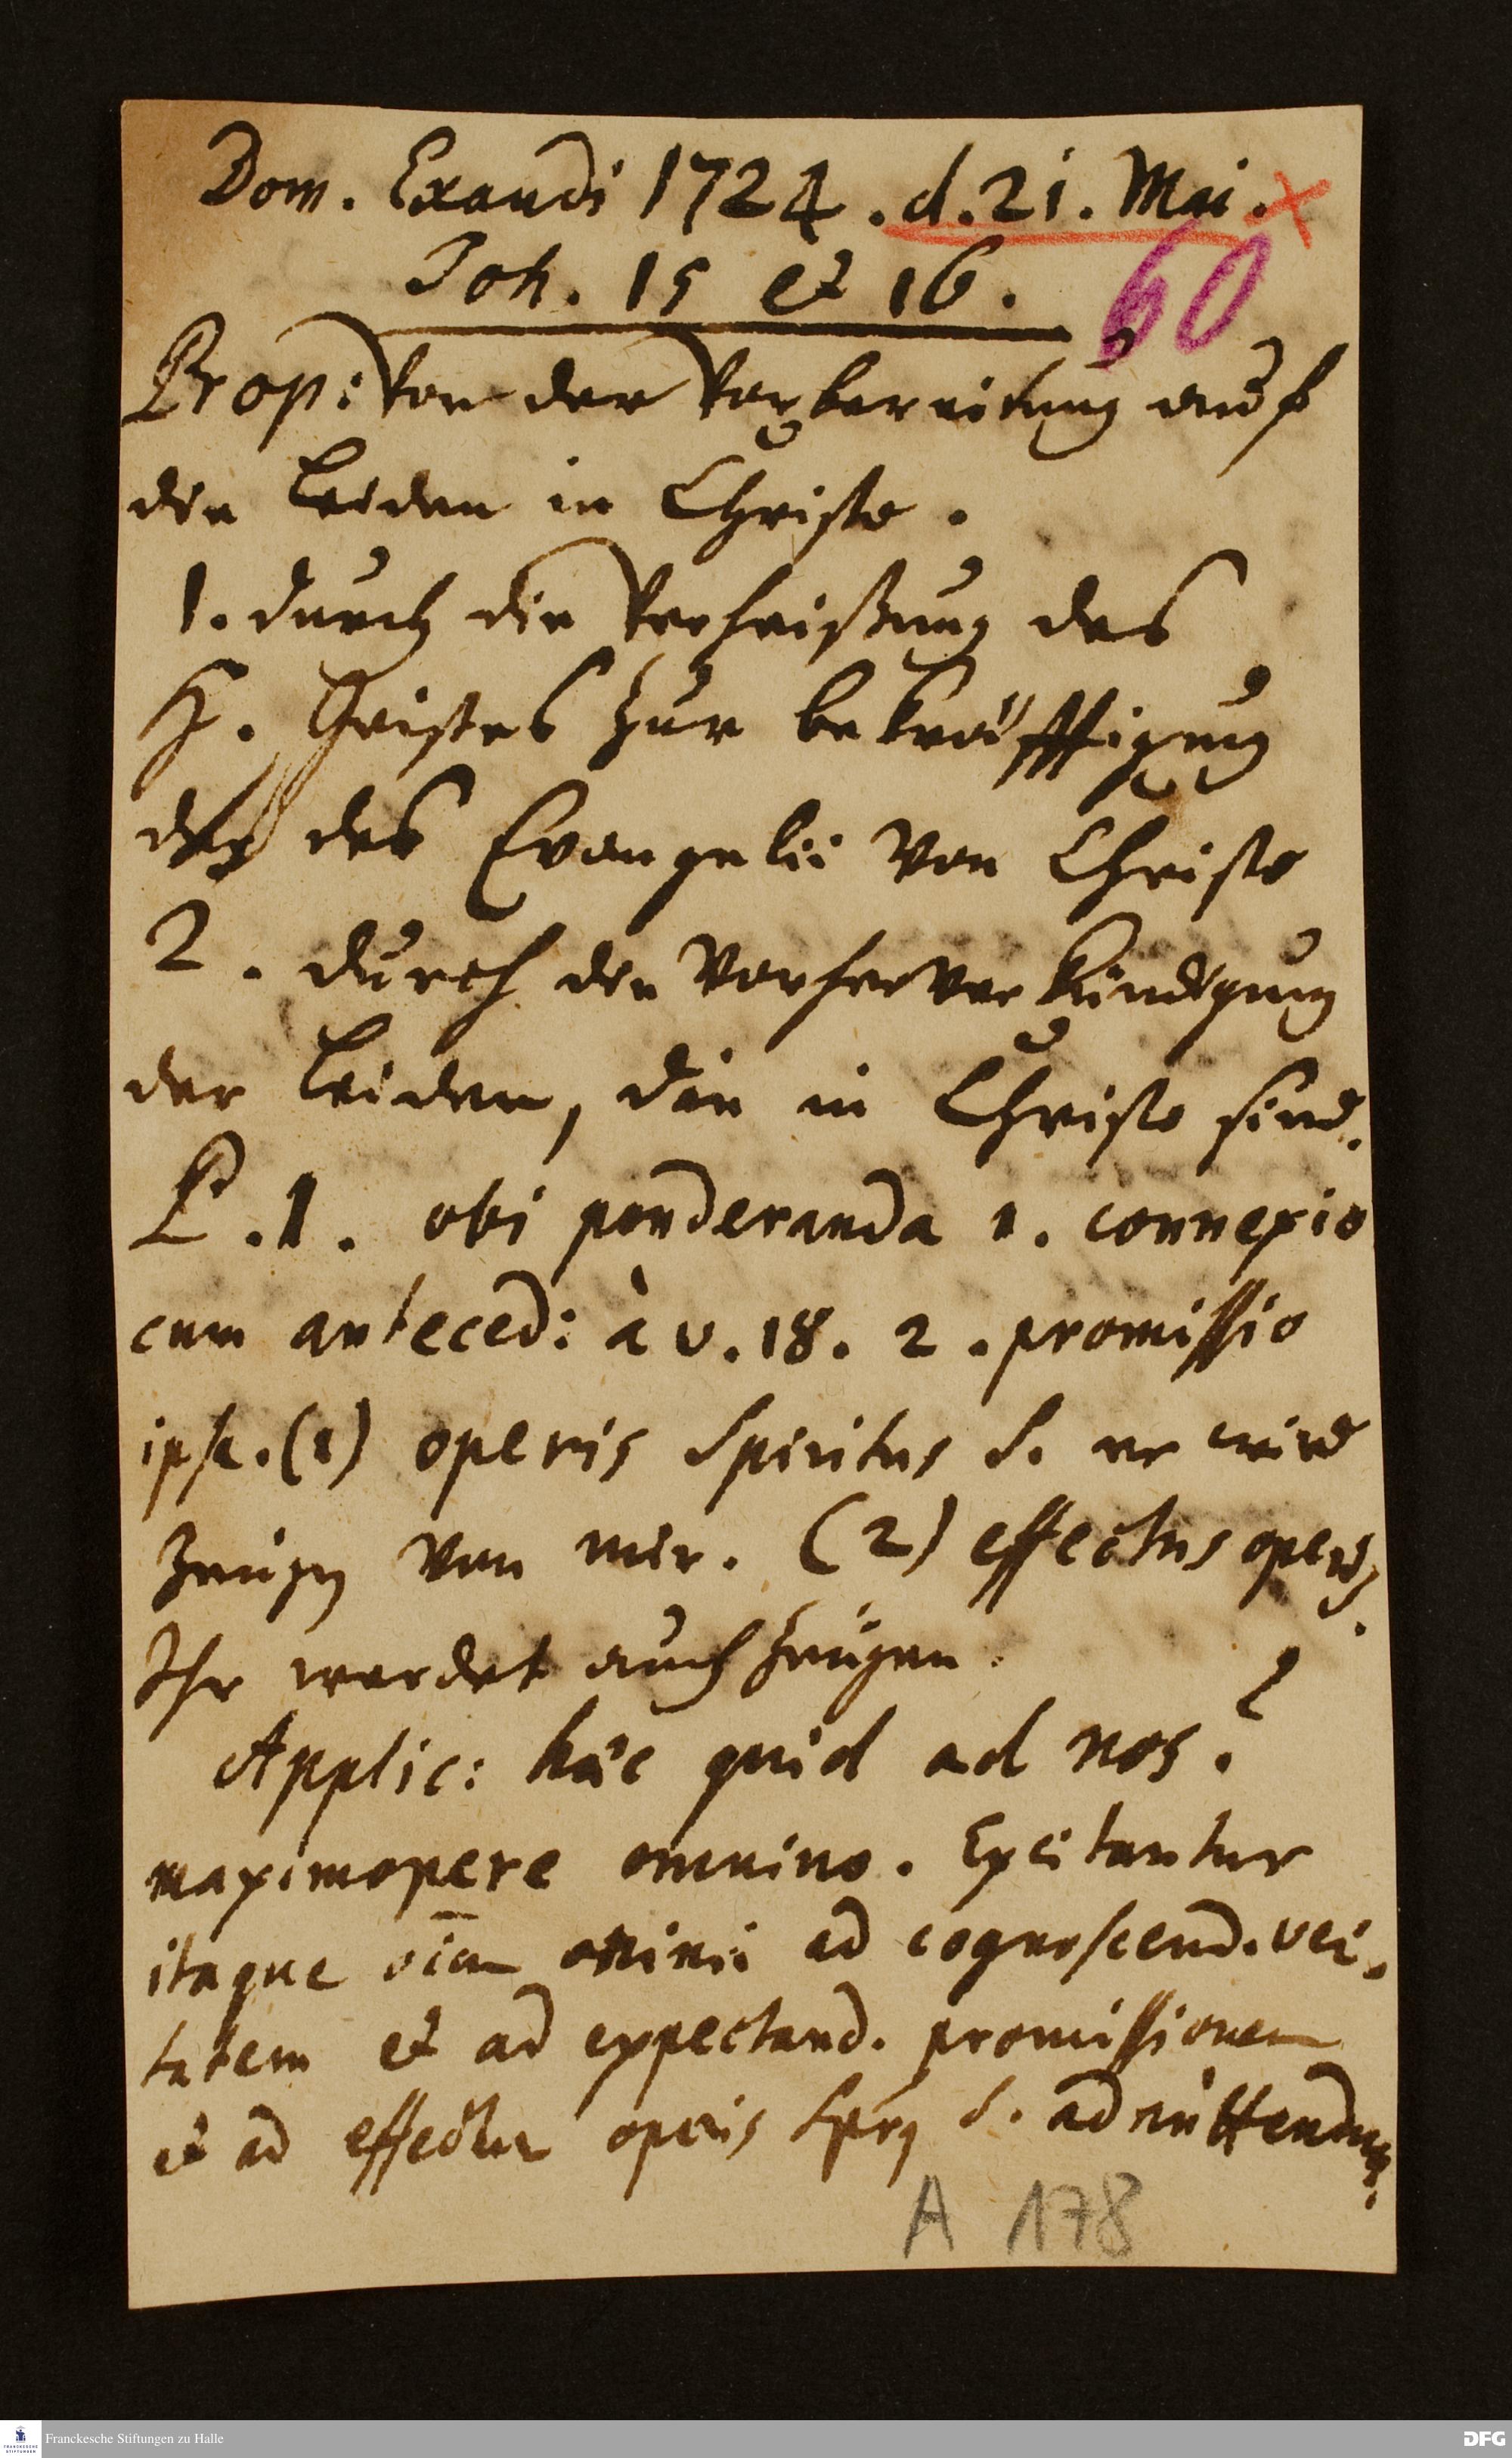 Dom. Exaudi 1724. d. 21. Maii. x
Joh. 15 et 16. 60
Prop: Von der Vorbereitung auf
die Leiden in Christo.
1. durch die Verheißung des
H. Geistes zur bekräfftigung
der des Evangelii von Christo
2. durch die Vorherverkündigung
der Leiden, die in Christo sind.
P. 1. ubi ponderanda 1. connexio
cum anteced: à v. 18. 2. promissio
ipsa. (1) operis Spiritus S. er wird
zeugen von mir. (2) effectus operis.
Ihr werdet auch zeugen.
Applic: hæc quid ad nos?
maximopere omnino. Excitantur
itaque ad cognoscend. veri-
tatem et ad expectand. promissionem
et ad effectum operis S. admittendum.
A 178
FRANCKESCHE STIFTUNGEN
Franckesche Stiftungen zu Halle
DFG